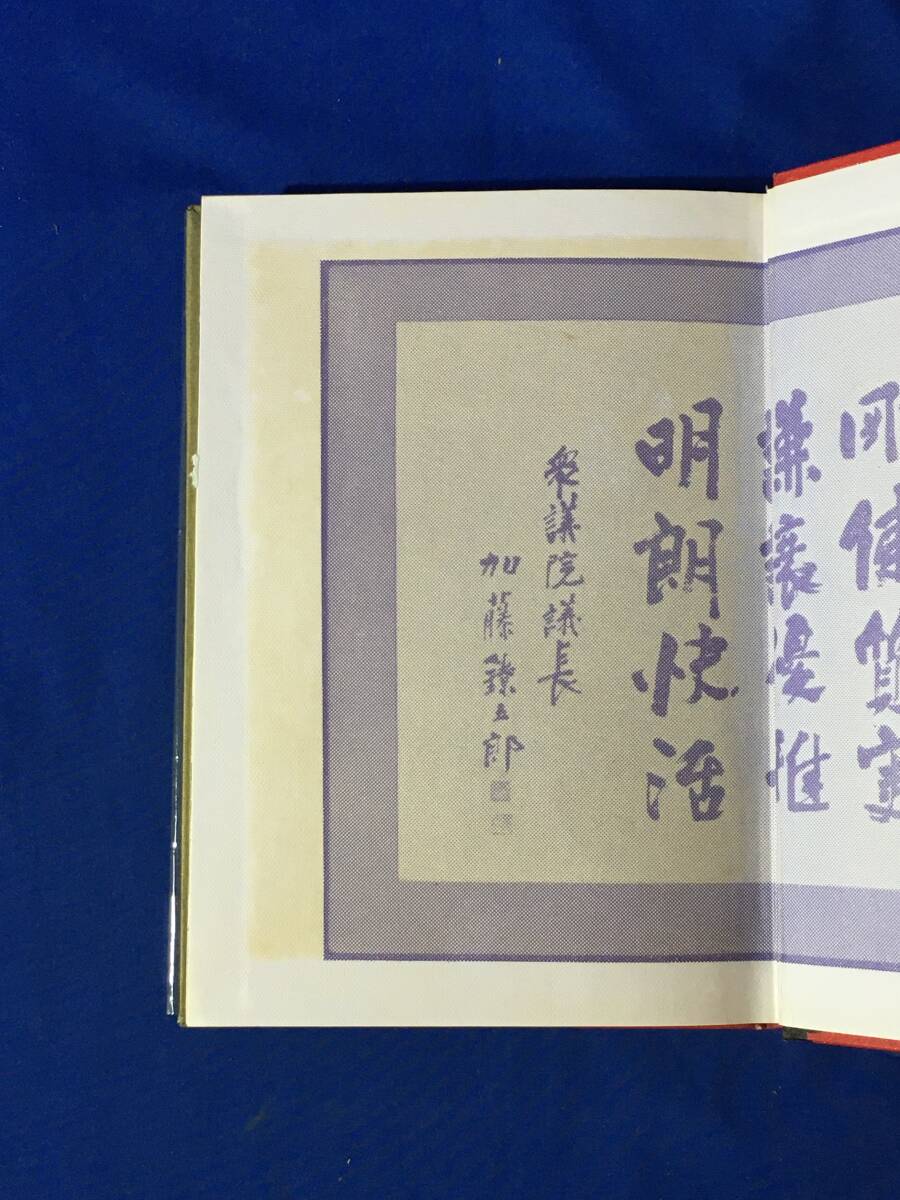 剛健質実
謙譲優雅
明朗快活
衆議院議長
加藤鐐五郎